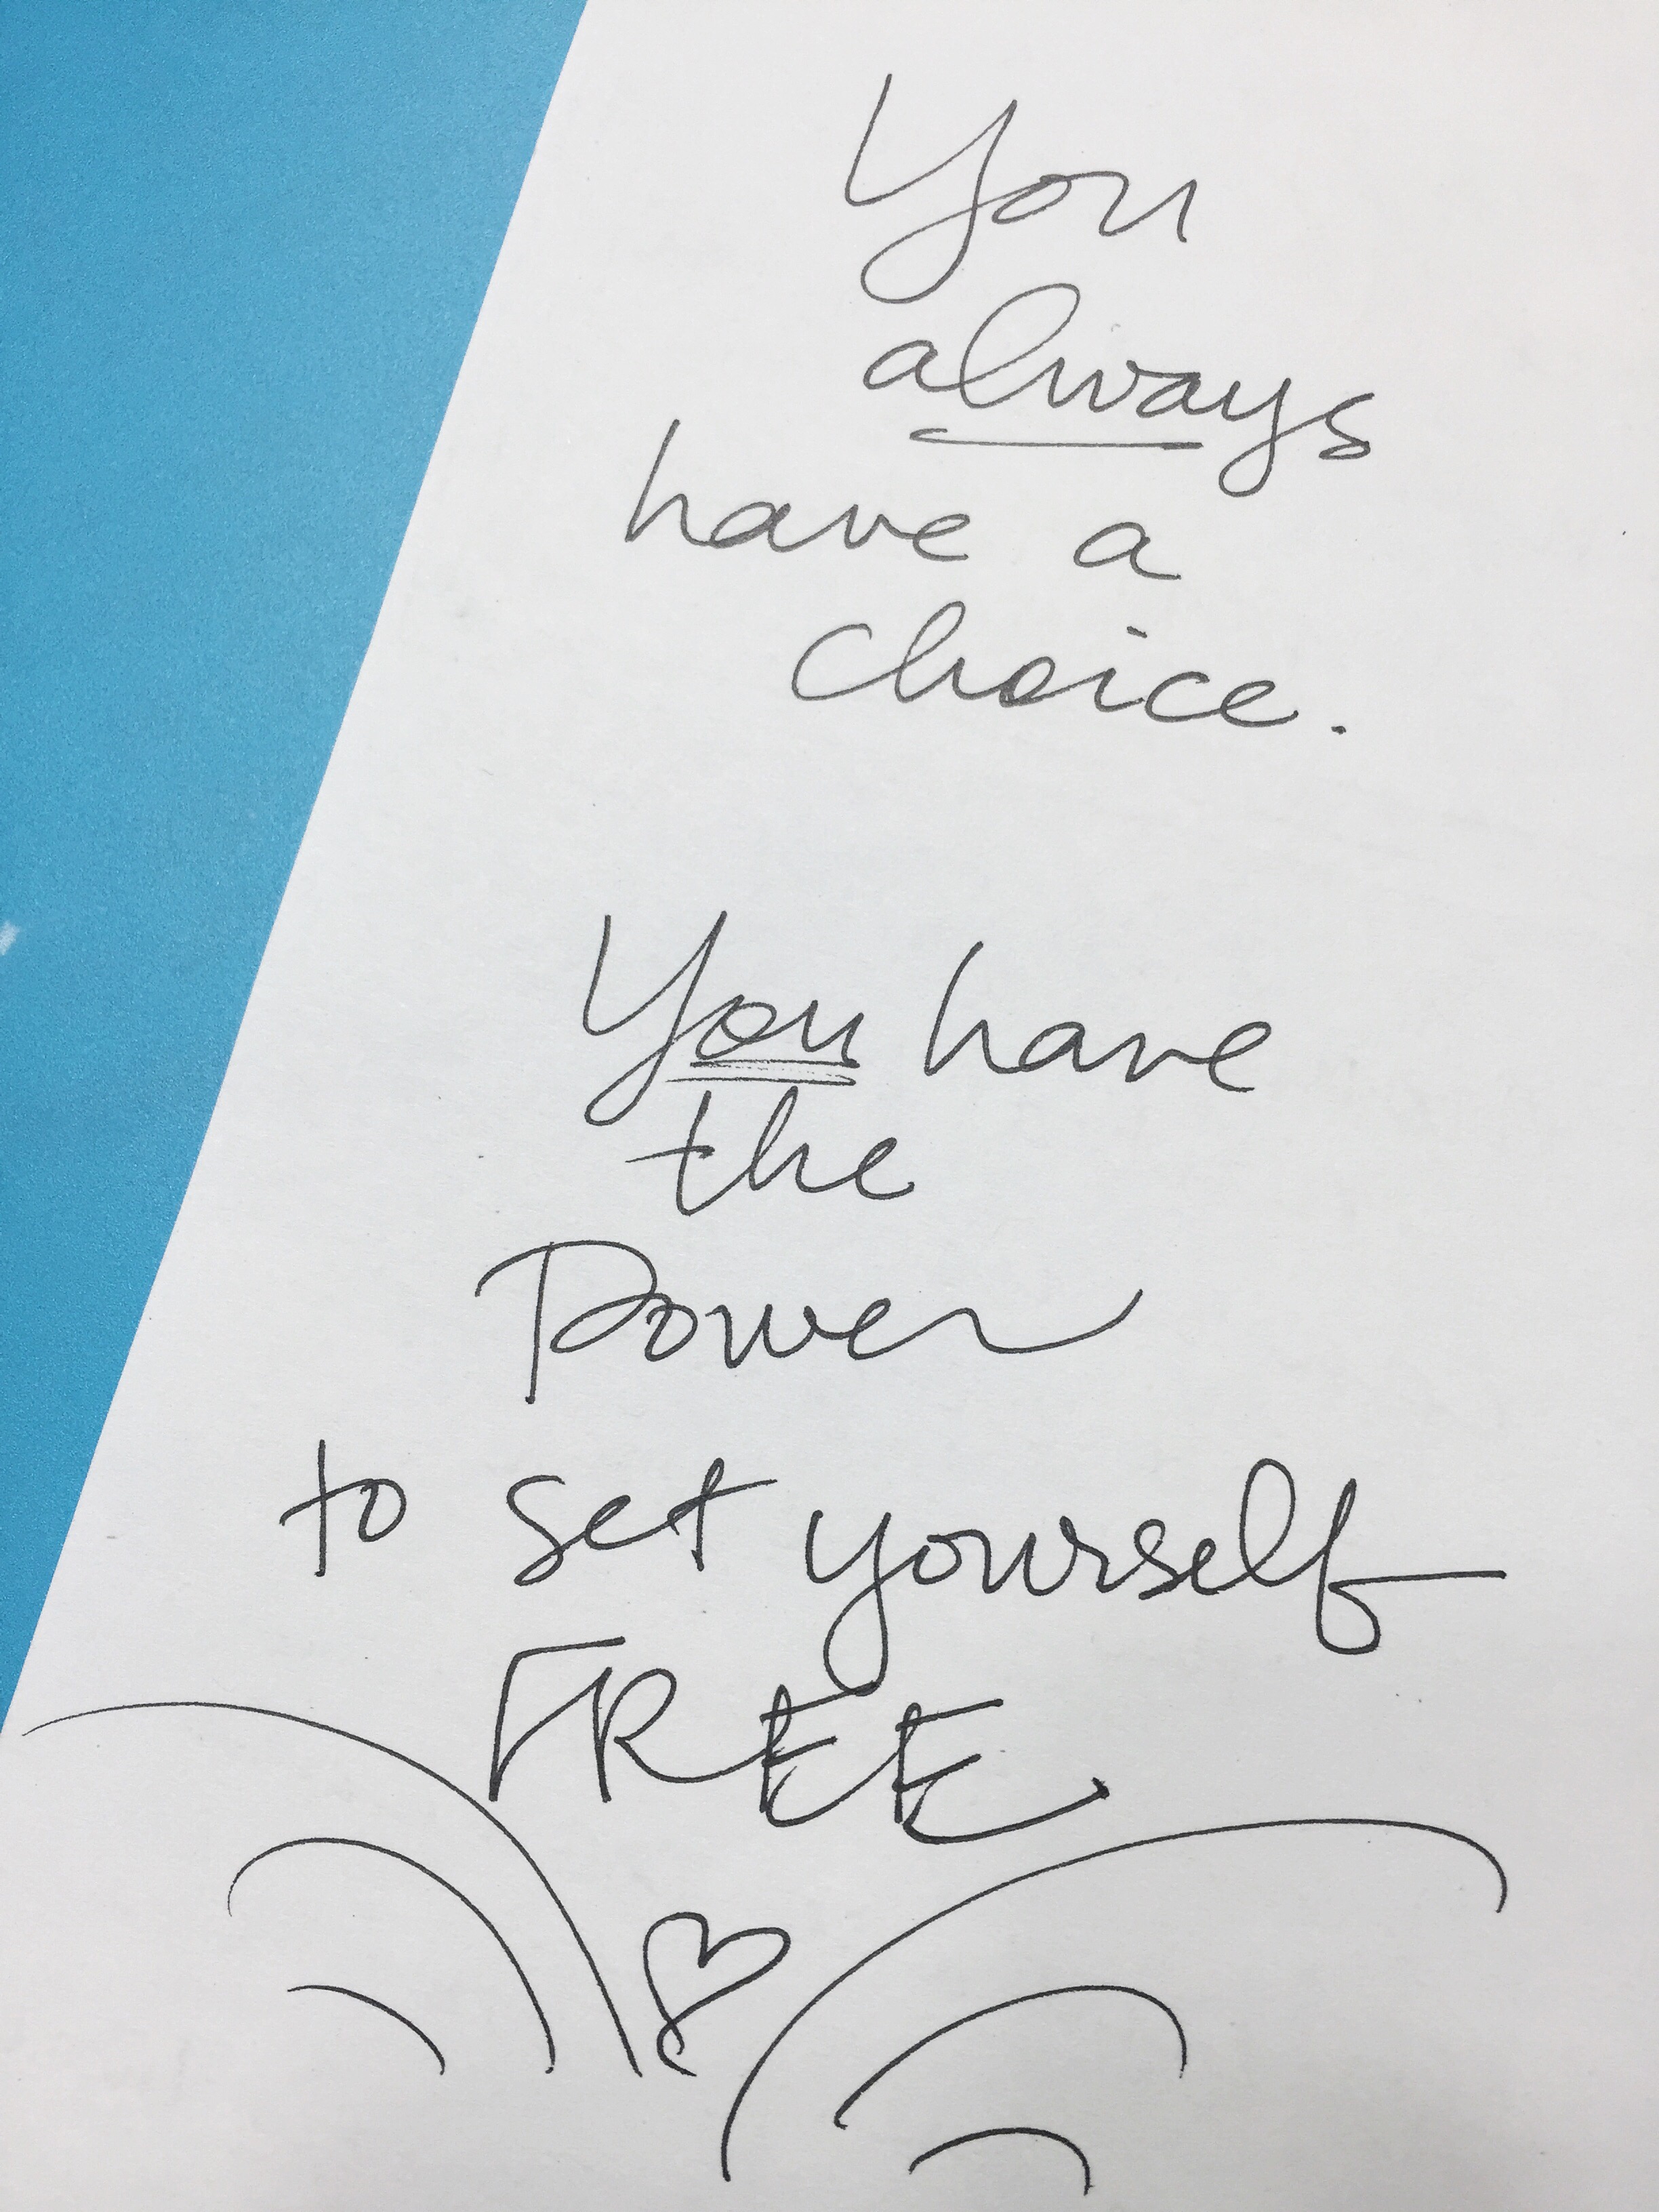 You
always
have a
choice.
You have
the
Power
to set yourself
FREE